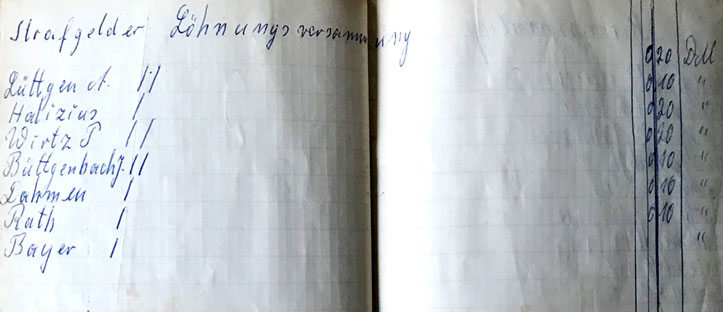 Strafgelder Löhnungsversammung
Lüttgen A. || 0 20 DM
Halizius | 0 10 "
Wirtz P || 0 20 "
Büttgenbach J. || 0 20 "
Lahmen | 0 10 "
Rath | 0 10 "
Bayer | 0 10 "
"